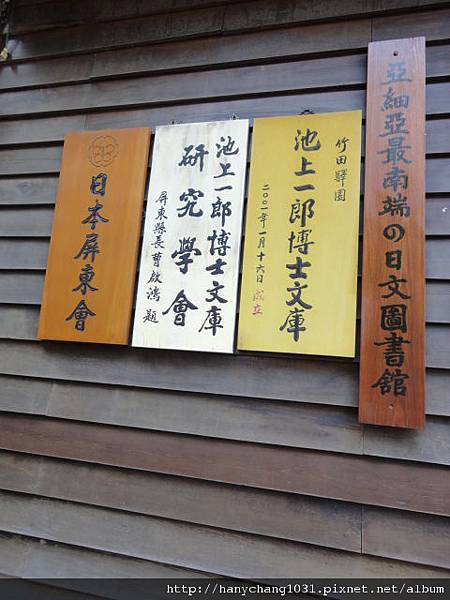 亞細亞最南端の日文圖書館
竹田驛園
池上一郎博士文庫
二○○一年一月十六日成立
池上一郎博士文庫
研究學會
屏東縣長曹啟鴻題
日本屏東會
http://hanychang1031.pixnet.net/album